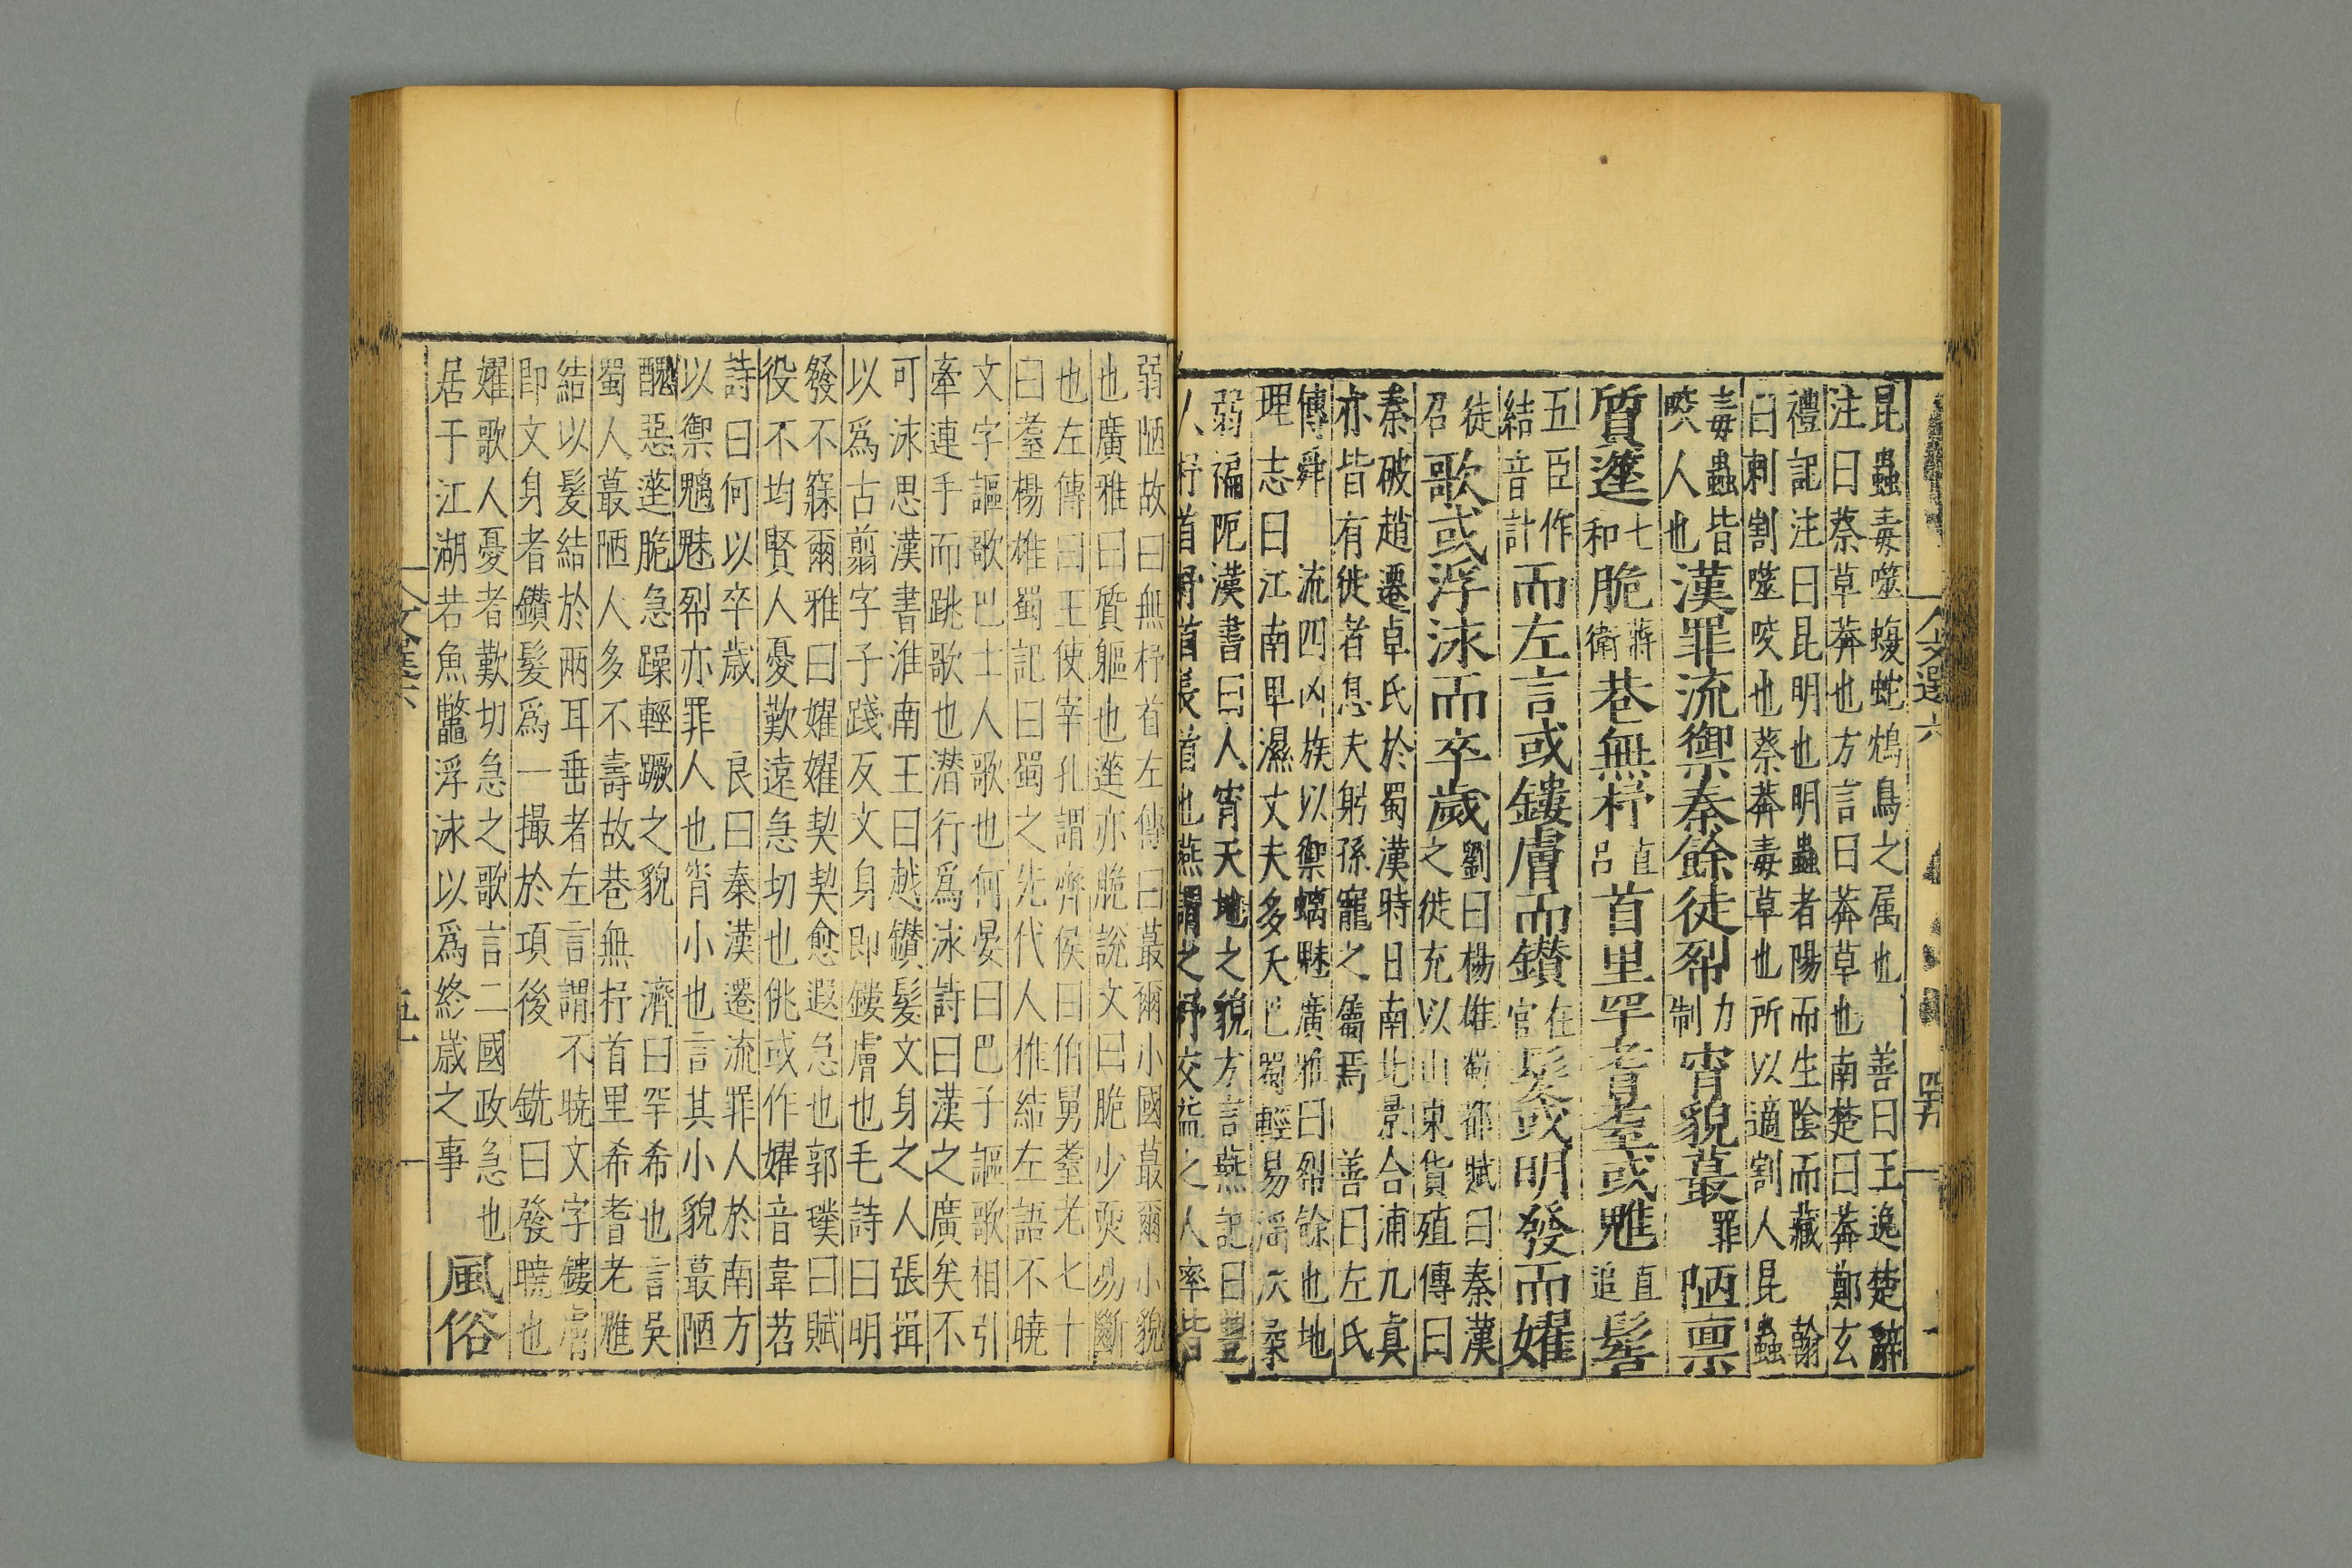 文選六
昆蟲毒噬蝮蛇鴆鳥之属也 善曰王逸楚辭
注曰蔡草莽也方言曰莽草也南楚曰莽鄭玄
禮記注曰昆明也明蟲者陽而生陰而藏 翰
曰刺割噬咬也蔡莽毒草也所以適割人昆蟲
毒蟲皆
咬人也
漢罪流禦秦餘徒𠛱
力
制
宵貌蕞
罪
陋禀
質蓌
七
和
脆
蔣
衛
巷無杼
直
呂
首里罕耆耋或魋
直
追
髻
五臣作
結音計
而左言或鏤膚而鑚
在
官
髮或明發而嬥
徒
召
歌或浮泳而卒歲
劉曰楊雄蜀都賦曰秦漢
之徙充以山東貨殖傳曰
秦破趙遷卓氏於蜀漢時日南北景合浦九真
亦皆有徙者息夫躬孫寵之屬焉 善曰左氏
傳舜 流四凶族以禦螭魅廣雅曰𠛱餘也地
理志曰江南卑濕丈夫多夭巴蜀輕易淫泆柔
弱褊阨漢書曰人宵天地之貌方言燕記曰豐
人杼首杼首長首也燕謂之杼交益之人率皆
弱陋故曰無杼首左傳曰蕞爾小國蕞爾小貌
也廣雅曰質軀也蓌亦脆說文曰脆少耎易斷
也左傳曰王使宰孔謂齊侯曰伯舅耋老七十
曰耋楊雄蜀記曰蜀之先代人椎結左語不曉
文字謳歌巴土人歌也何晏曰巴子謳歌相引
牽連手而跳歌也潛行爲泳詩曰漢之廣矣不
可泳思漢書淮南王曰越鑚髮文身之人張揖
以爲古翦字子踐反文身即鏤膚也毛詩曰明
發不寐爾雅曰嬥嬥契契愈遐急也郭璞曰賦
役不均賢人憂歎遠急切也佻或作嬥音葦苕
詩曰何以卒歲 良曰秦漢遷流罪人於南方
以禦魑魅𠛱亦罪人也宵小也言其小貌蕞陋
醜惡蓌脆急躁輕蹶之貌 濟曰罕希也言吳
蜀人蕞陋人多不壽故巷無杼首里希耆老魋
結以髮結於兩耳垂者左言謂不曉文字鏤膚
即文身者鑚髮爲一撮於項後 銑曰發曉也
嬥歌人憂者歎切急之歌言二國政急也
居于江湖若魚鼈浮泳以爲終歲之事
風俗